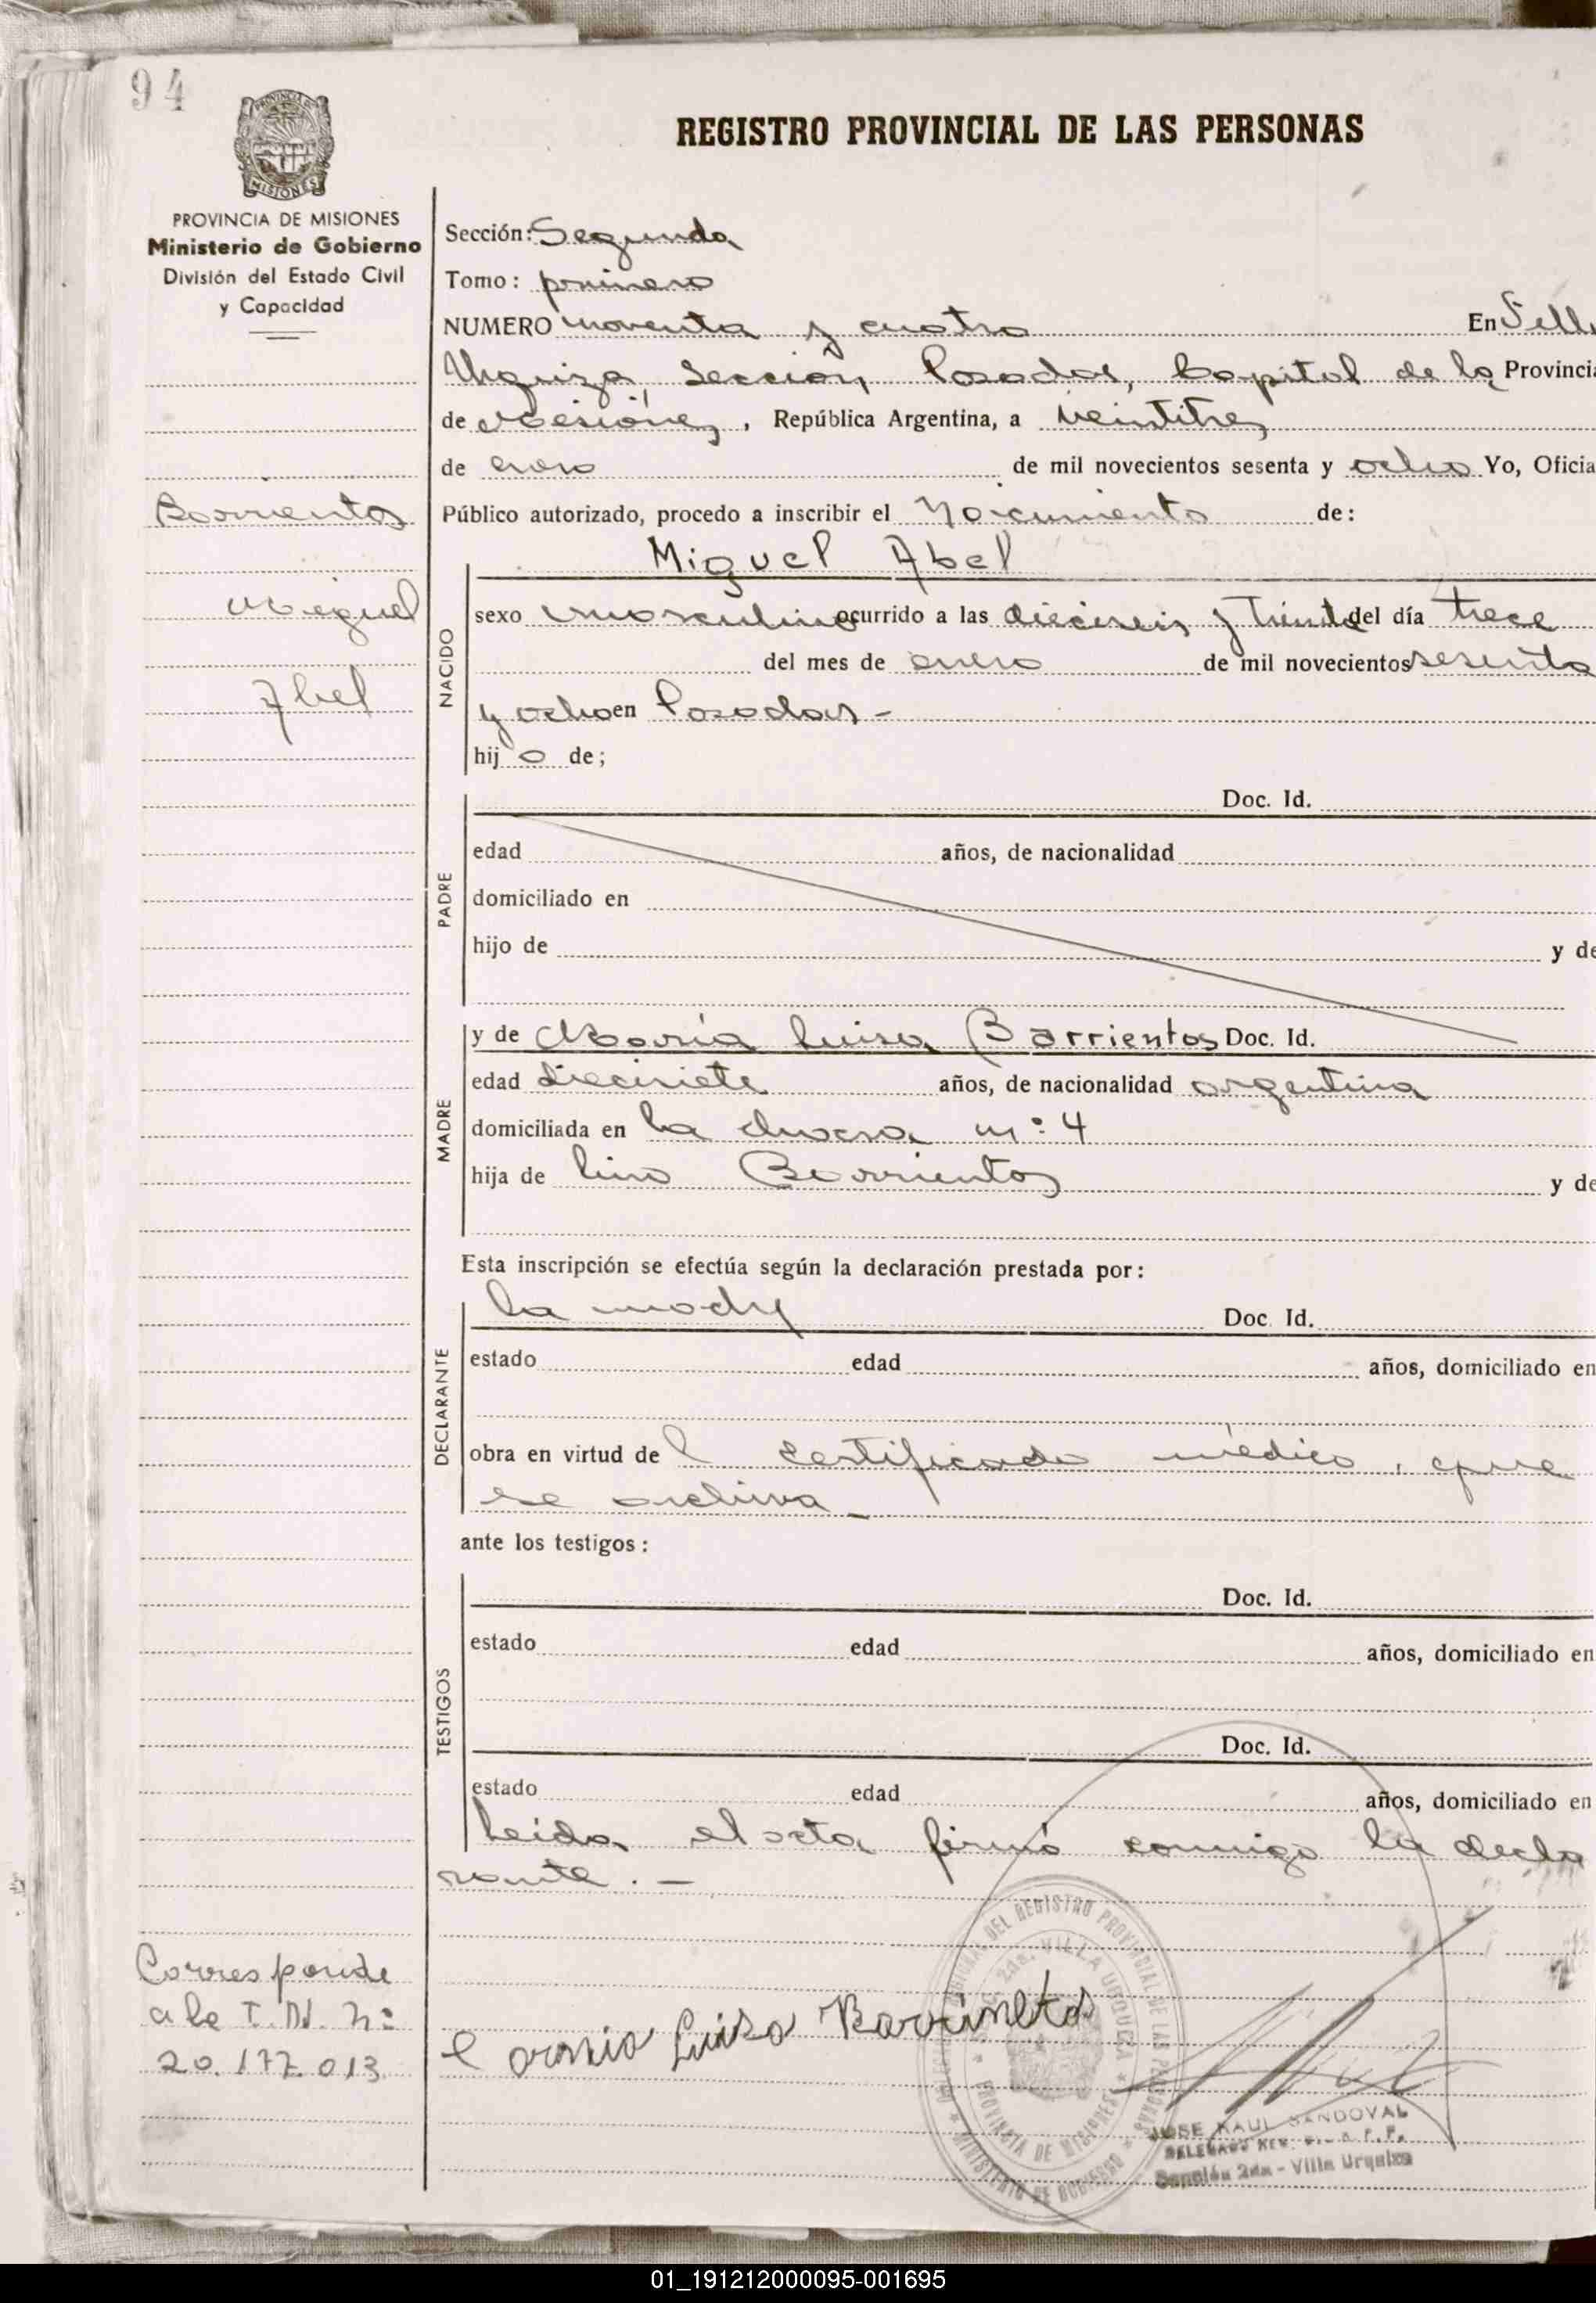 94
PROVINCIA DE MISIONES
MISIONES
PROVINCIA DE MISIONES
Ministerio de Gobierno
División del Estado Civil
y Capacidad
Barrientos
Miguel
Abel
Corresponde
a la T. N. Nº
20.177.013
REGISTRO PROVINCIAL DE LAS PERSONAS
Sección: Segunda
Tomo: primero
NUMERO noventa y cuatro En Villa
Urquiza, Sección, Posadas, Capital de la Provincia
de Misiones, República Argentina, a veintitres
de enero de mil novecientos sesenta y ocho Yo, Oficia
Público autorizado, procedo a inscribir el Nacimiento de:
Miguel Abel
NACIDO
sexo masculino ocurrido a las dieciseis y treinta del día trece
del mes de enero de mil novecientos sesenta
y ocho en Posadas -
hij o de;
PADRE
Doc. Id.
edad años, de nacionalidad
domiciliado en
hijo de y de
MADRE
y de María Luisa Barrientos Doc. Id.
edad diecisiete años, de nacionalidad argentina
domiciliada en La chacra nº 4
hija de Lino Barrientos y de
Esta inscripción se efectúa según la declaración prestada por:
DECLARANTE
la madre Doc. Id.
estado edad años, domiciliado en
obra en virtud de l certificado médico, que
se archiva -
ante los testigos:
TESTIGOS
Doc. Id.
estado edad años, domiciliado en
Doc. Id.
estado edad años, domiciliado en
Leida el acta firmó conmigo la decla
rante. -
Luisa
JOSE RAUL SANDOVAL
Sección 2da - Villa Urquiza
DEL REGISTRO PROVINCIAL DE LAS PERSONAS
MINISTERIO DE GOBIERNO
2da. VILLA URQUIZA
PROVINCIA DE MISIONES
01_191212000095-001695